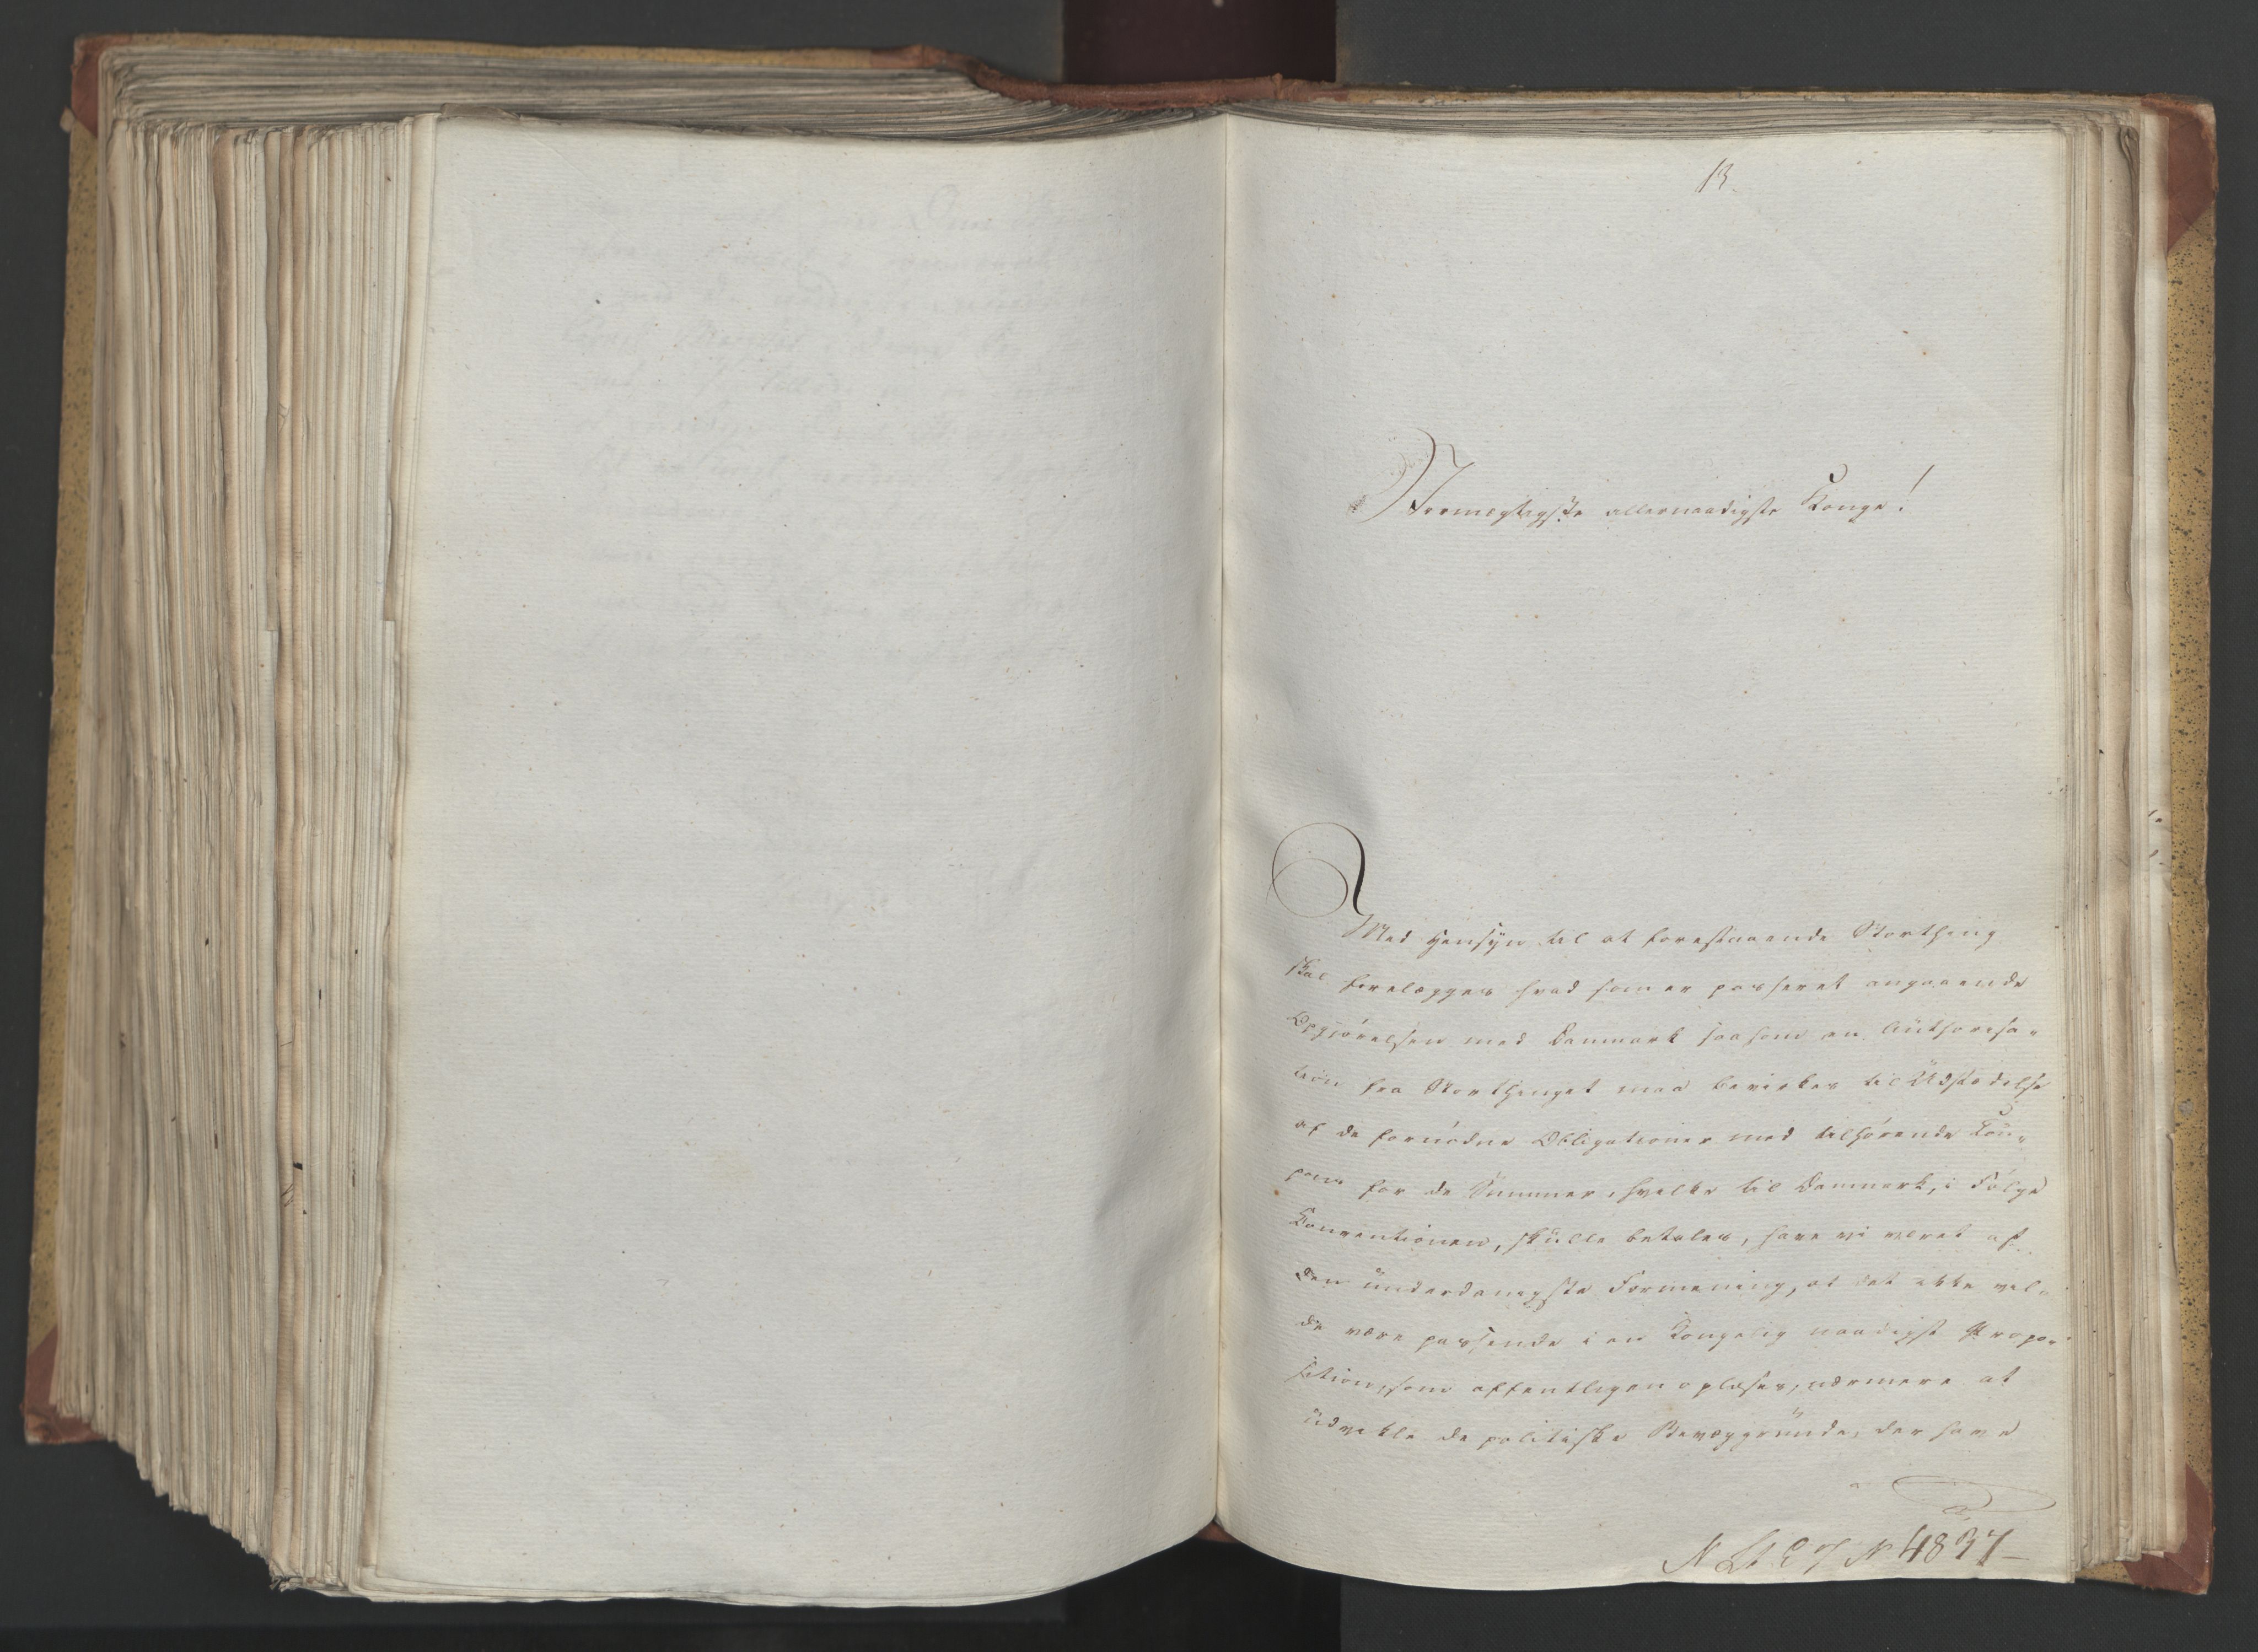 13.
Stormægtigste allernaadigste Konge!
Med Hensyn til at forestaaende Storthing
skal forelægges hvad som er passeret angaaende
Opgjørelsen med Danmark saasom en Authorisa-
tion fra Storthinget maa bevirkes til Udstædelse
af de fornødne Obligationer med tilhørende Cou-
pons for de Summer, hvilke til Danmark, i Følge
Conventionen, skulle betales, have vi været af
den underdanigste Formening, at det ikke vil-
de være passende i en Kongelig naadigst Propo-
sition, som offentligen oplæses, nærmere at
udvikle de politiske Bevæggrunde, der have
4837